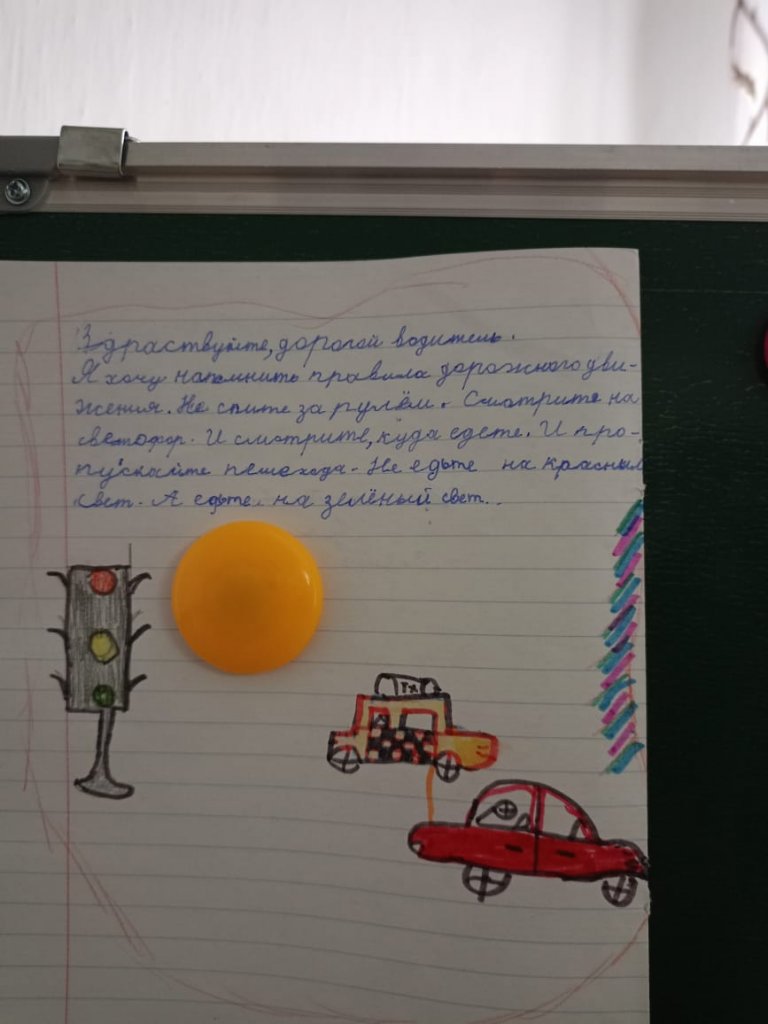 Здраствуйте, дорогой водитель.
Я хочу напомнить правила дорожного дви-
жения. Не спите за рулём. Смотрите на
светофор. И смотрите, куда едете. И про-
пускайте пешехода. Не едьте на красный
свет. А едьте на зелёный свет..
Тх